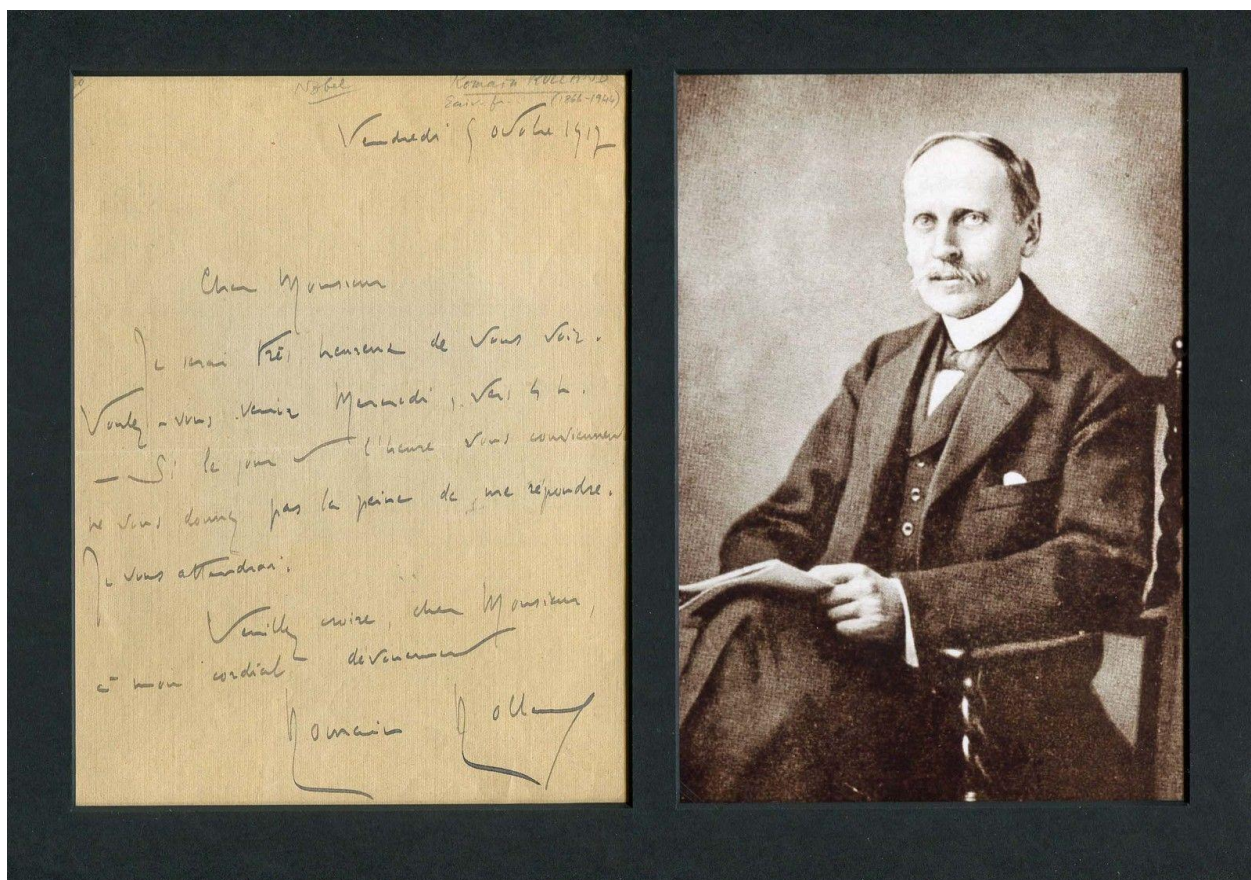 Nobel Romain ROLLAND
Ecriv. fr. (1866-1944)
Vendredi 5 octobre 1917
Cher Monsieur
Je serai très heureux de vous voir.
Voulez-vous venir Mercredi, vers 4 h.
— Si le jour et l'heure vous conviennent
ne vous donnez pas la peine de me répondre.
Je vous attendrai.
Veuillez croire, cher Monsieur,
à mon cordial dévouement
Romain Rolland